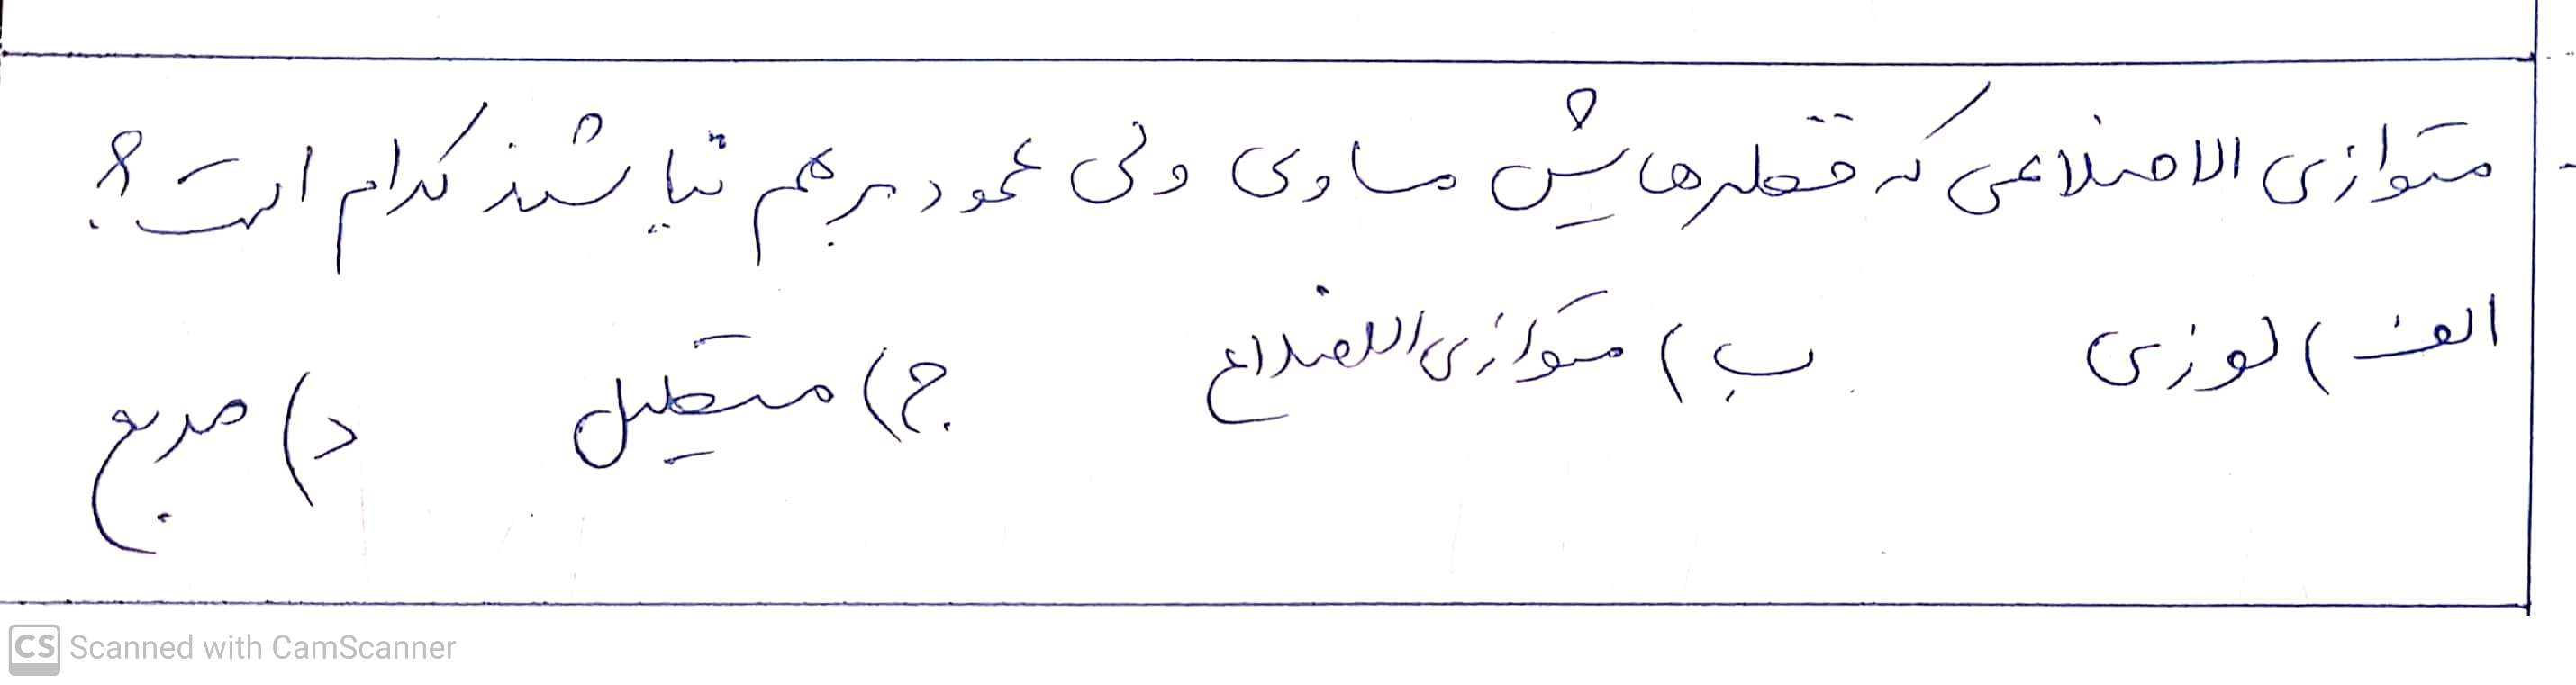 متوازی الاضلاعی که قطرهایش مساوی ولی عمود بر هم نباشند کدام است؟
الف) لوزی ب) متوازی الاضلاع ج) مستطیل د) مربع
CS Scanned with CamScanner